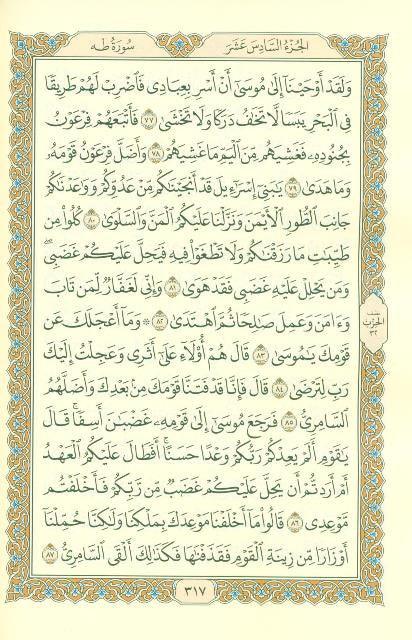 سُورَةُ طه
الجُزْءُ السَّادِسَ عَشَرَ
وَلَقَدْ أَوْحَيْنَآ إِلَىٰ مُوسَىٰٓ أَنْ أَسْرِ بِعِبَادِى فَٱضْرِبْ لَهُمْ طَرِيقًا
فِى ٱلْبَحْرِ يَبَسًا لَّا تَخَٰفُ دَرَكًا وَلَا تَخْشَىٰ ٧٧ فَأَتْبَعَهُمْ فِرْعَوْنُ
بِجُنُودِهِۦ فَغَشِيَهُم مِّنَ ٱلْيَمِّ مَا غَشِيَهُمْ ٧٨ وَأَضَلَّ فِرْعَوْنُ قَوْمَهُۥ
وَمَا هَدَىٰ ٧٩ يَٰبَنِىٓ إِسْرَٰٓءِيلَ قَدْ أَنجَيْنَٰكُم مِّنْ عَدُوِّكُمْ وَوَٰعَدْنَٰكُمْ
جَانِبَ ٱلطُّورِ ٱلْأَيْمَنَ وَنَزَّلْنَا عَلَيْكُمُ ٱلْمَنَّ وَٱلسَّلْوَىٰ ٨٠ كُلُوا۟ مِن
طَيِّبَٰتِ مَا رَزَقْنَٰكُمْ وَلَا تَطْغَوْا۟ فِيهِ فَيَحِلَّ عَلَيْكُمْ غَضَبِى ۖ
وَمَن يَحْلِلْ عَلَيْهِ غَضَبِى فَقَدْ هَوَىٰ ٨١ وَإِنِّى لَغَفَّارٌ لِّمَن تَابَ
وَءَامَنَ وَعَمِلَ صَٰلِحًا ثُمَّ ٱهْتَدَىٰ ٨٢ ۞ وَمَآ أَعْجَلَكَ عَن
قَوْمِكَ يَٰمُوسَىٰ ٨٣ قَالَ هُمْ أُو۟لَآءِ عَلَىٰٓ أَثَرِى وَعَجِلْتُ إِلَيْكَ
رَبِّ لِتَرْضَىٰ ٨٤ قَالَ فَإِنَّا قَدْ فَتَنَّا قَوْمَكَ مِنۢ بَعْدِكَ وَأَضَلَّهُمُ
ٱلسَّامِرِىُّ ٨٥ فَرَجَعَ مُوسَىٰٓ إِلَىٰ قَوْمِهِۦ غَضْبَٰنَ أَسِفًا ۚ قَالَ
يَٰقَوْمِ أَلَمْ يَعِدْكُمْ رَبُّكُمْ وَعْدًا حَسَنًا ۚ أَفَطَالَ عَلَيْكُمُ ٱلْعَهْدُ
أَمْ أَرَدتُّمْ أَن يَحِلَّ عَلَيْكُمْ غَضَبٌ مِّن رَّبِّكُمْ فَأَخْلَفْتُم
مَّوْعِدِى ٨٦ قَالُوا۟ مَآ أَخْلَفْنَا مَوْعِدَكَ بِمَلْكِنَا وَلَٰكِنَّا حُمِّلْنَآ
أَوْزَارًا مِّن زِينَةِ ٱلْقَوْمِ فَقَذَفْنَٰهَا فَكَذَٰلِكَ أَلْقَى ٱلسَّامِرِىُّ ٨٧
نصف
الحزب
٣٢
٣١٧